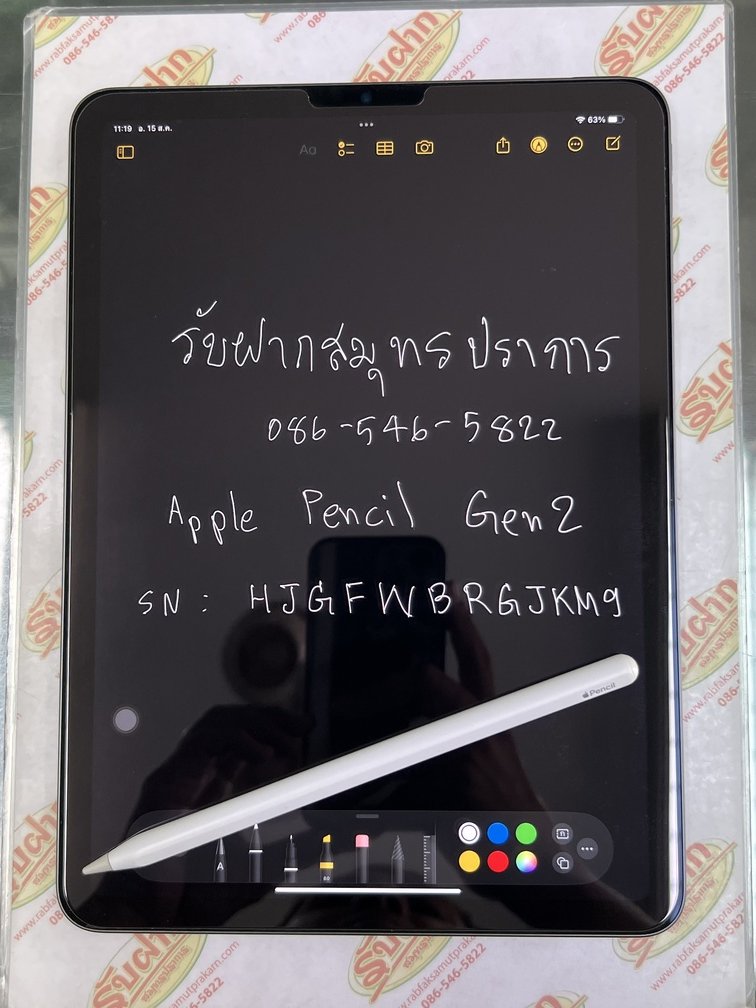 11:19 อ. 15 ส.ค.
63%
Aa
รับฝากสมุทรปราการ
086-546-5822
Apple Pencil Gen2
SN: HJGFWBRGJKM9
Pencil
A
80
รับฝาก
สมุทรปราการ
www.rabfaksamutprakarn.com
086-546-5822